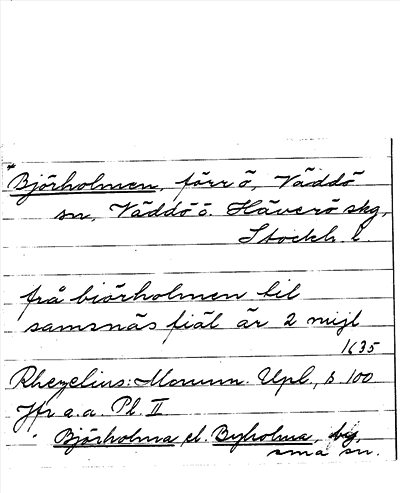 *Björholmen, förr ö, Väddö
sn, Väddö o. Häverö skg,
Stockh. l.
från biörholmen til
samsnäs fiäl är 2 mijl
1635
Rhezelius: Monum. Upl., s 100
Jfr a.a. Pl. II
Björholma el. Byholma,
sma sn.